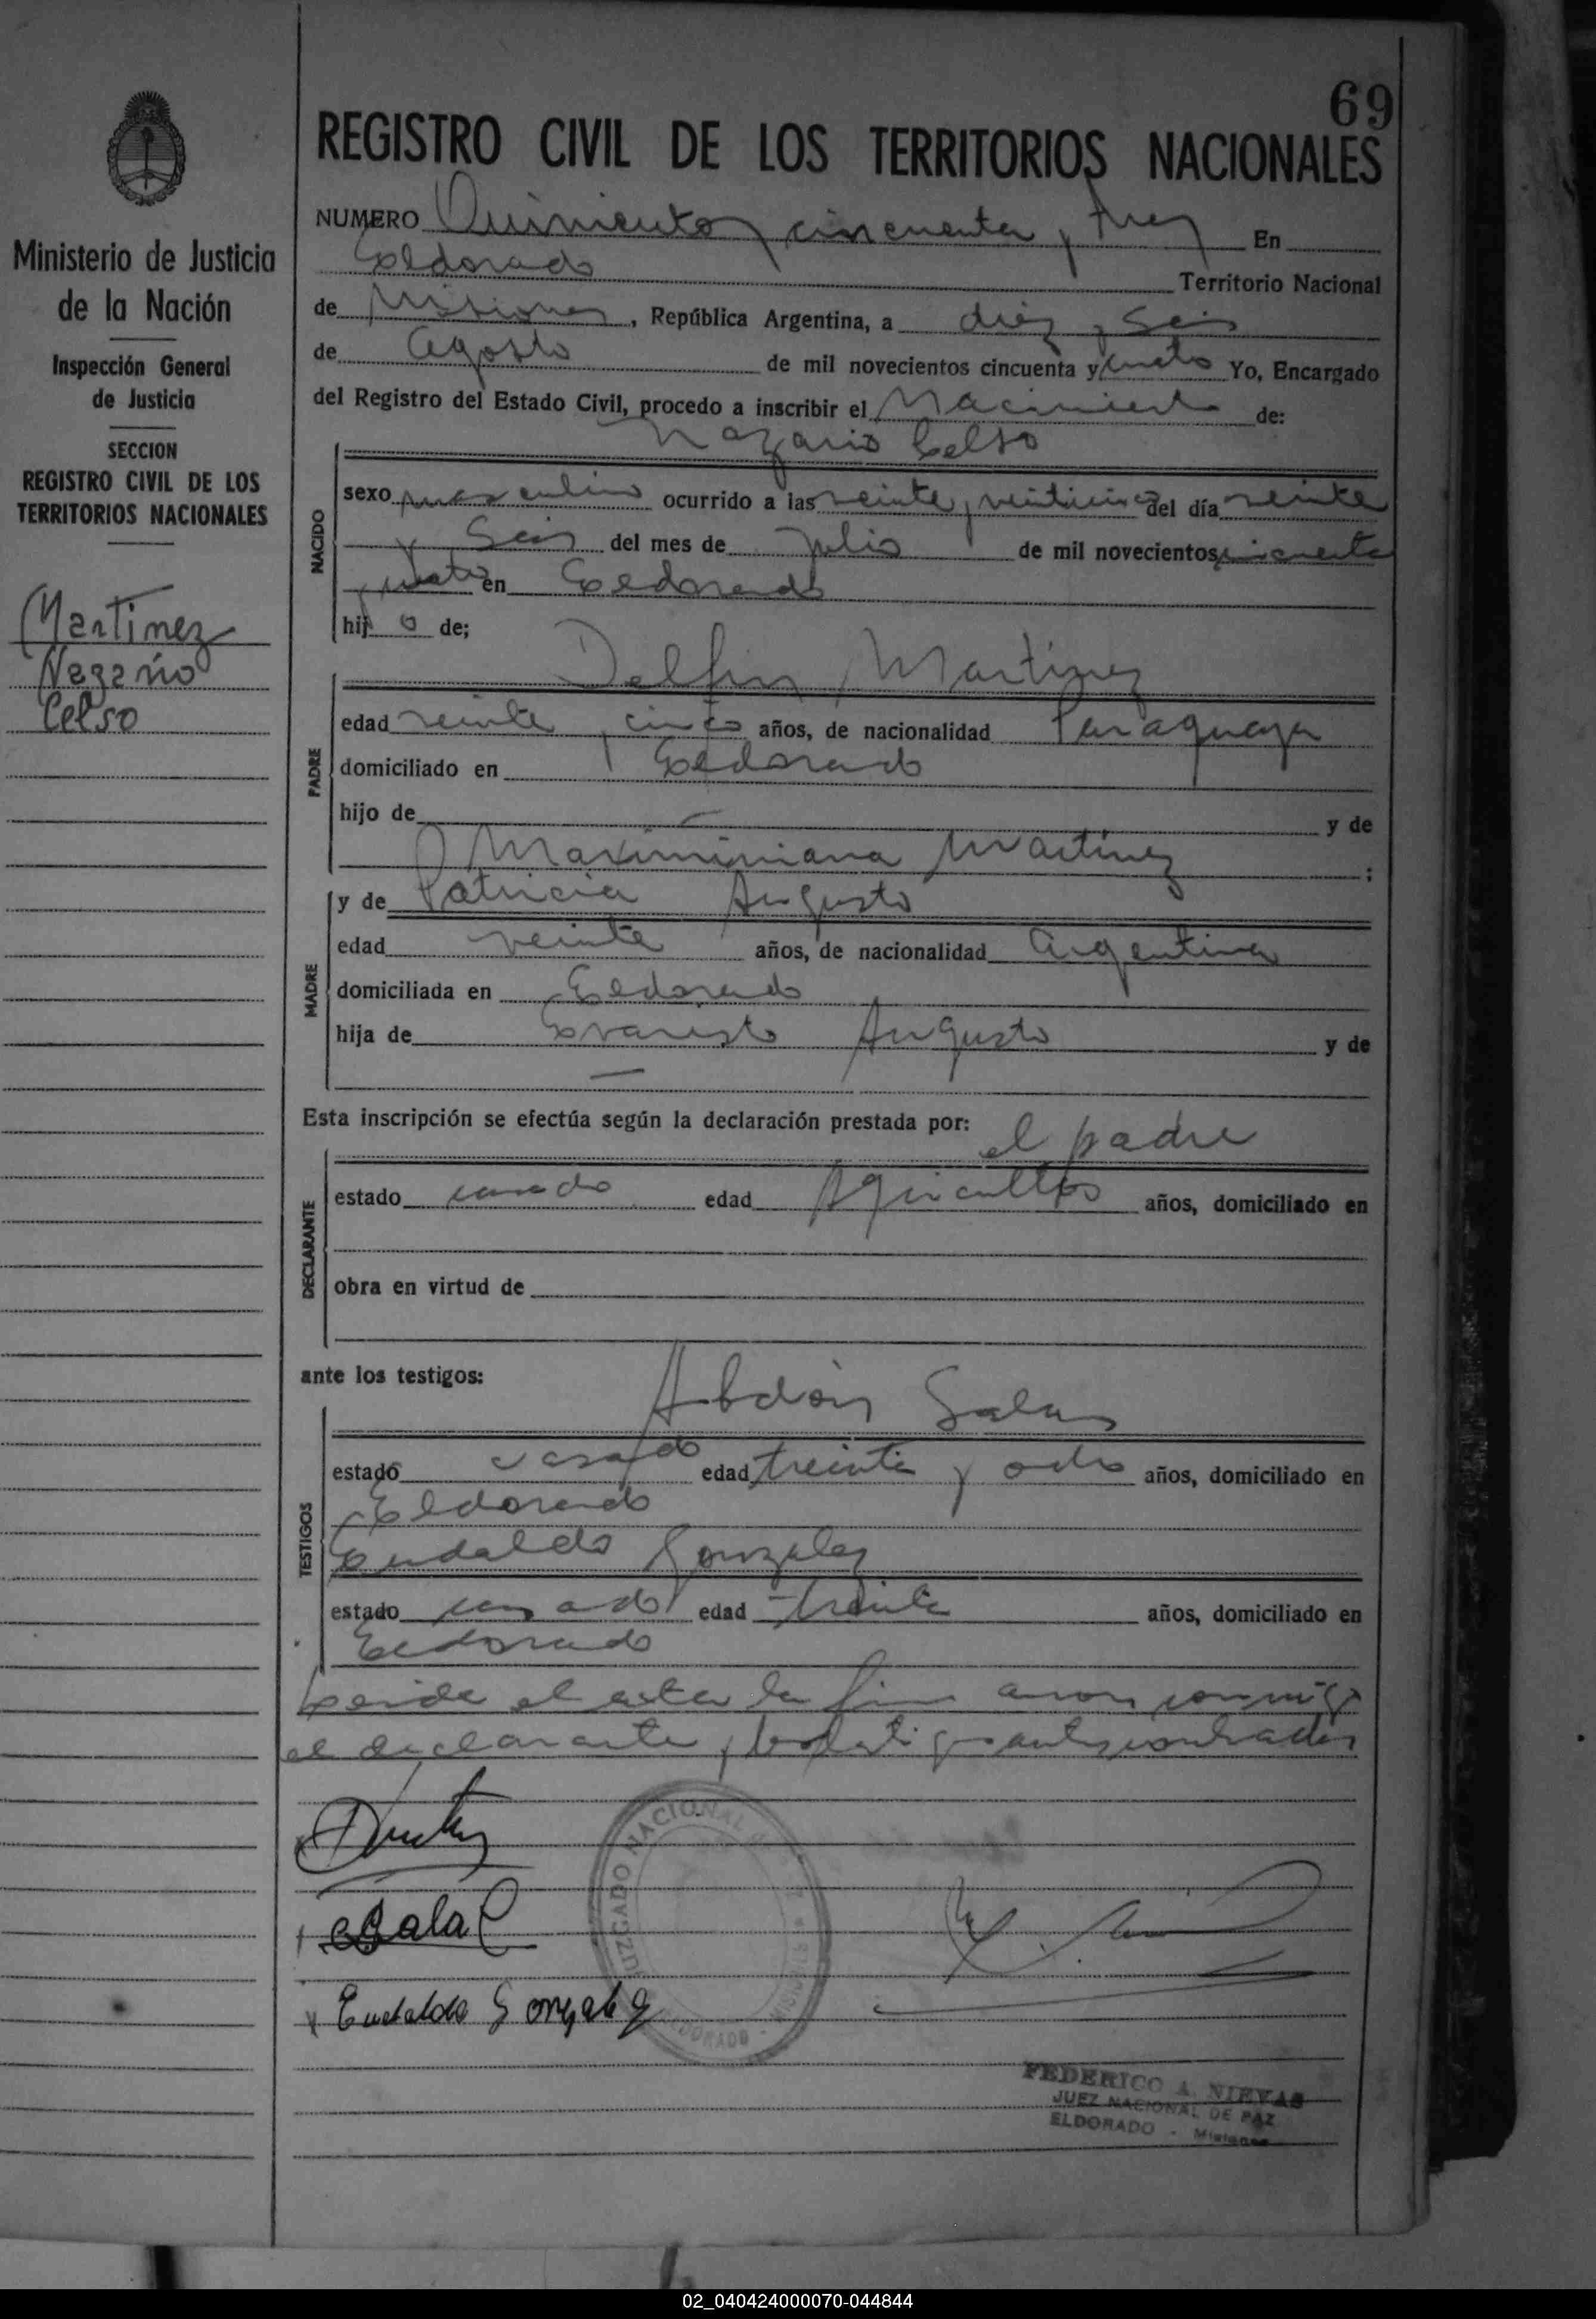 69
REGISTRO CIVIL DE LOS TERRITORIOS NACIONALES
Ministerio de Justicia
de la Nación
Inspección General
de Justicia
SECCION
REGISTRO CIVIL DE LOS
TERRITORIOS NACIONALES
Martínez
Nazario
Celso
NUMERO Quinientos cincuenta y tres En
Eldorado Territorio Nacional
de Misiones, República Argentina, a diez y seis
de agosto de mil novecientos cincuenta y cuatro Yo, Encargado
del Registro del Estado Civil, procedo a inscribir el Nacimiento de:
Nazario Celso
NACIDO
sexo masculino ocurrido a las veinte y veinticinco del día veinte
y seis del mes de julio de mil novecientos cincuenta
y cuatro en Eldorado
hijo de;
Delfin Martinez
PADRE
edad veinte y cinco años, de nacionalidad Paraguaya
domiciliado en Eldorado
hijo de — y de
Maximiniana Martinez ;
MADRE
y de Patricia Augusto
edad veinte años, de nacionalidad argentina
domiciliada en Eldorado
hija de Evaristo Augusto y de
—
Esta inscripción se efectúa según la declaración prestada por: el padre
DECLARANTE
estado casado edad Agricultor años, domiciliado en
obra en virtud de
ante los testigos:
Abdón Salas
TESTIGOS
estado casado edad treinta y ocho años, domiciliado en
Eldorado
Eudaldo Gonzalez
estado casado edad treinta años, domiciliado en
Eldorado
Leida el acta la firmaron conmigo
el declarante y los testigos antes nombrados
Salas
Eudaldo Gonzalez
JUZGADO NACIONAL
ELDORADO - MISIONES
FEDERICO A. NIEVAS
JUEZ NACIONAL DE PAZ
ELDORADO - Misiones
02_040424000070-044844